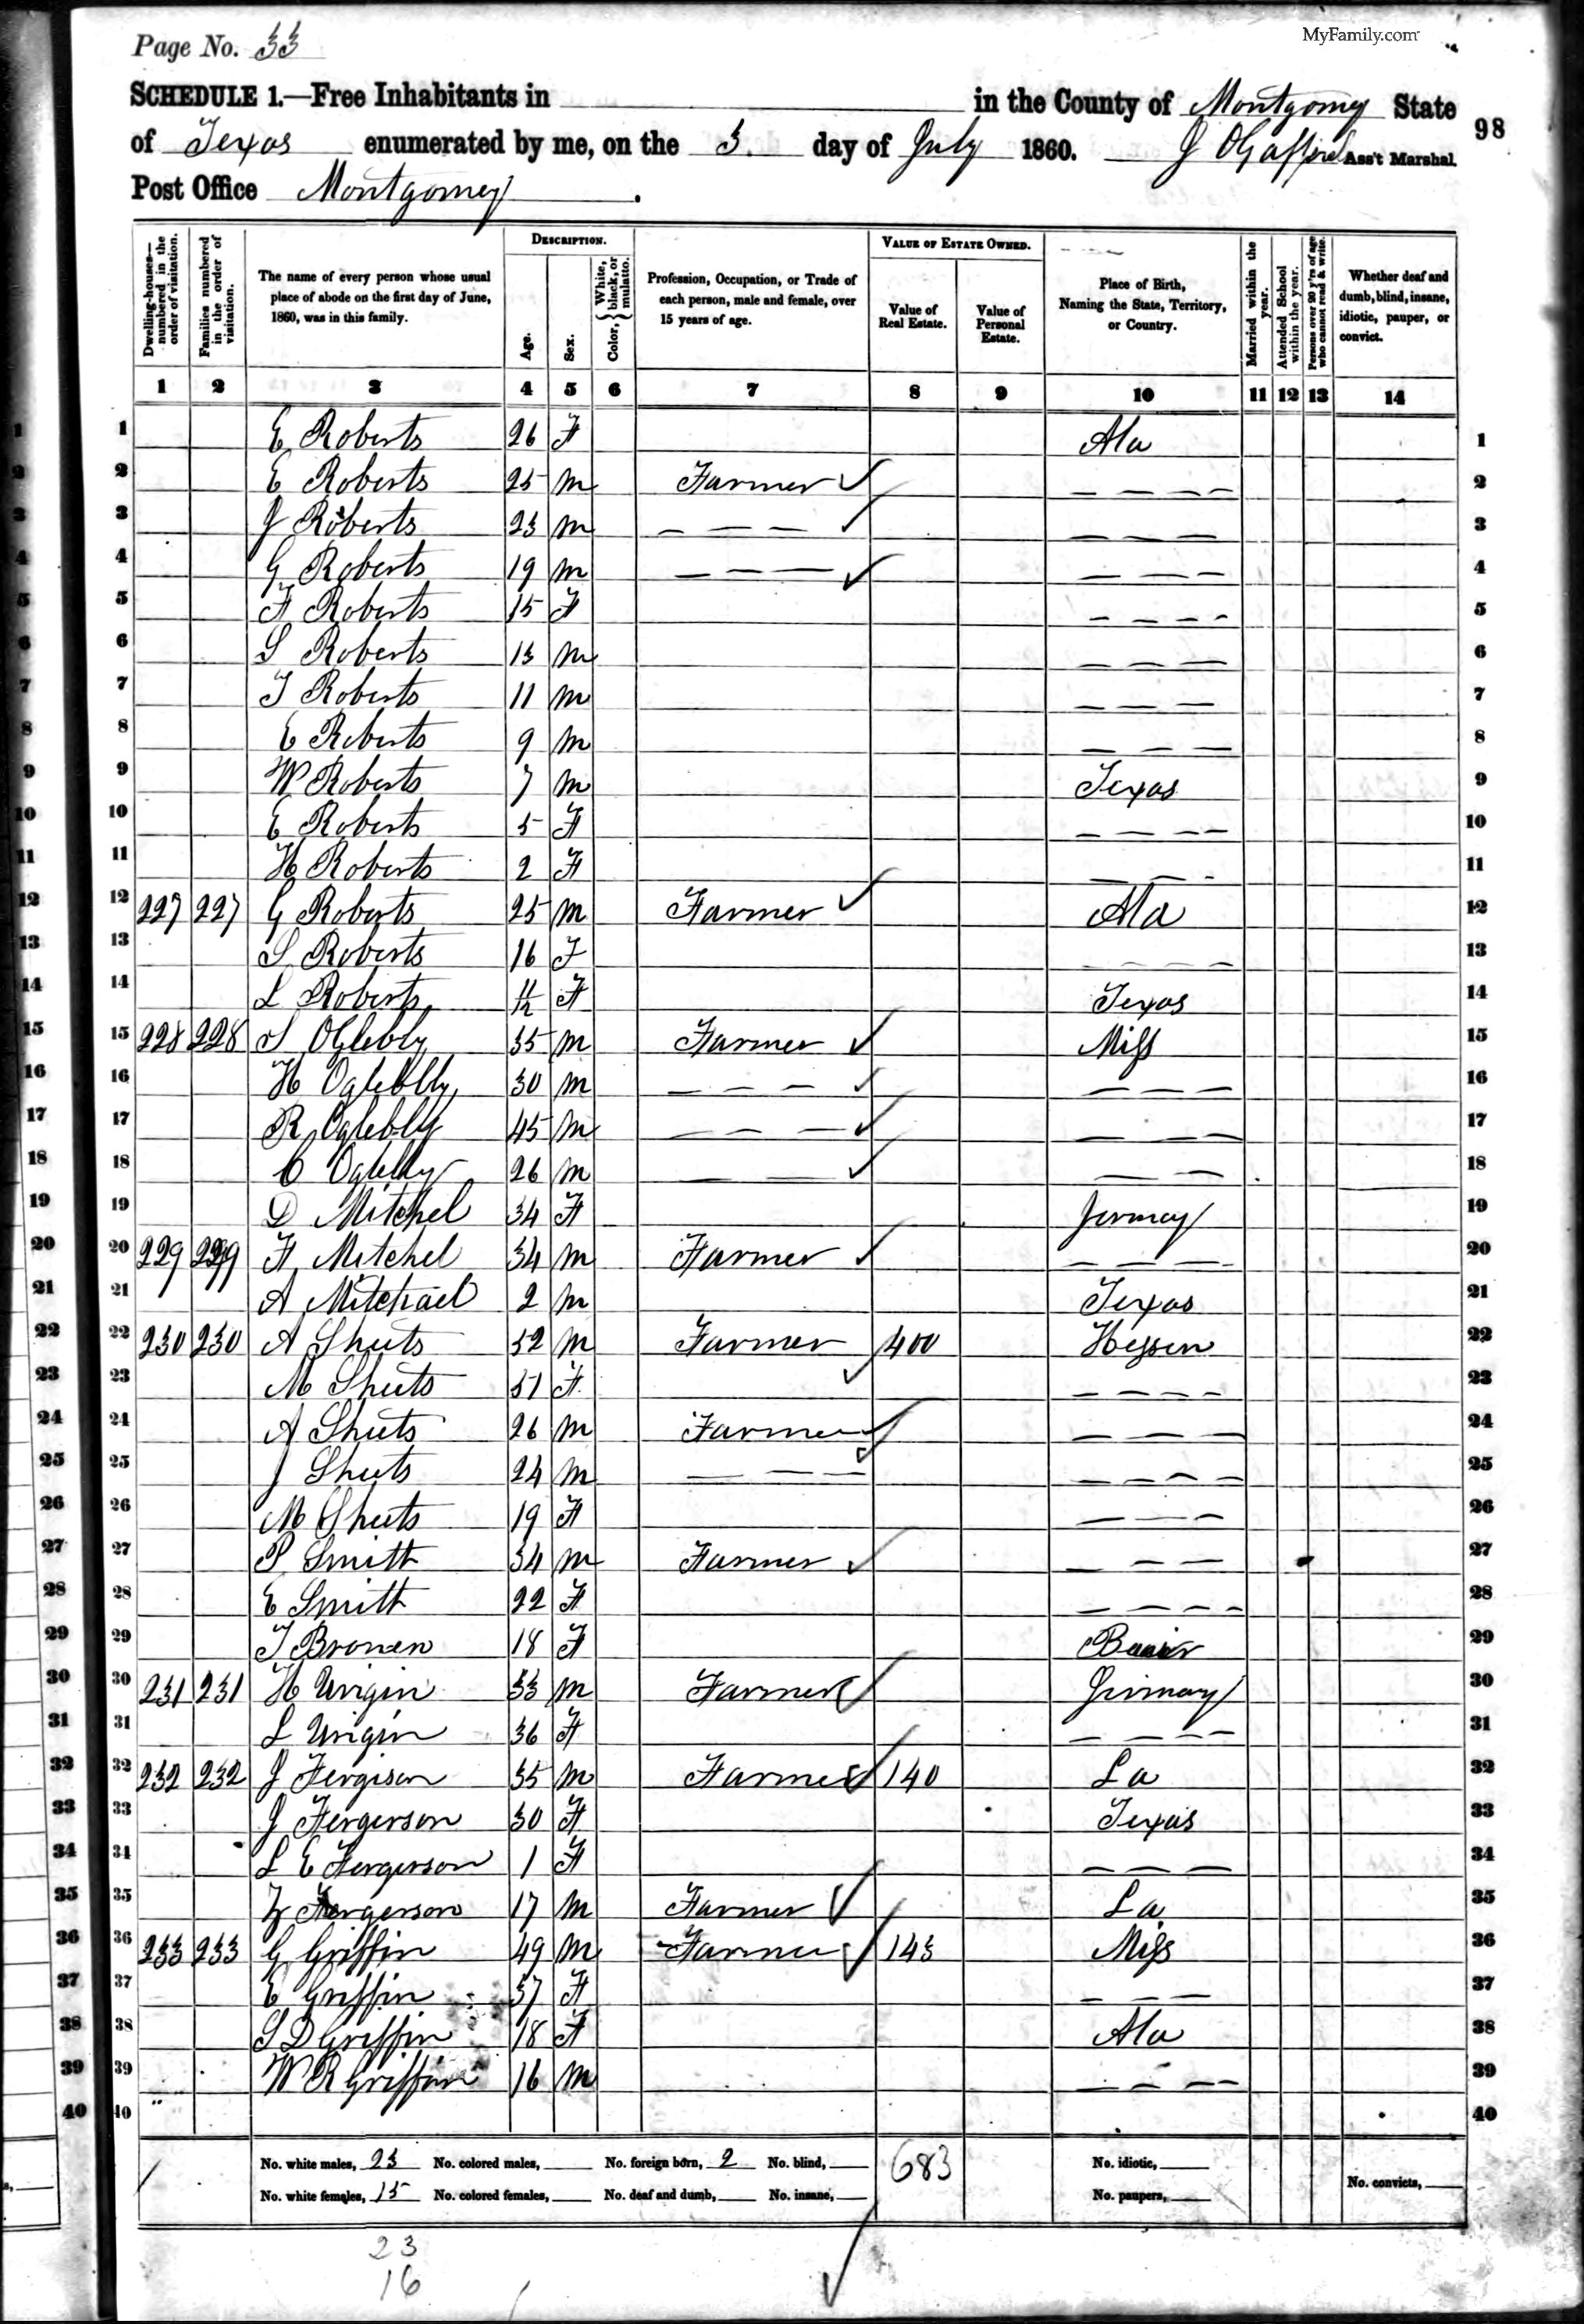 MyFamily.com
Page No. 33
SCHEDULE 1.—Free Inhabitants in in the County of Montgomy State
of Texas enumerated by me, on the 3 day of July 1860. Ass't Marshal. 98
Post Office Montgomey.
Dwelling-houses—numbered in the order of visitation.
Families numbered in the order of visitation.
The name of every person whose usual place of abode on the first day of June, 1860, was in this family.
DESCRIPTION.
Age.
Sex.
Color, { White, black, or mulatto.
Profession, Occupation, or Trade of each person, male and female, over 15 years of age.
VALUE OF ESTATE OWNED.
Value of Real Estate.
Value of Personal Estate.
Place of Birth, Naming the State, Territory, or Country.
Married within the year.
Attended School within the year.
Persons over 20 y'rs of age who cannot read & write.
Whether deaf and dumb, blind, insane, idiotic, pauper, or convict.
1 2 3 4 5 6 7 8 9 10 11 12 13 14
1 E Roberts 26 F Ala 1
2 E Roberts 25 m Farmer — — — — 2
3 J Roberts 23 m — — — — — — 3
4 G Roberts 19 m — — — — — — 4
5 F Roberts 15 F — — — — 5
6 S Roberts 13 m — — — 6
7 T Roberts 11 m — — — 7
8 E Roberts 9 m — — — 8
9 W Roberts 7 m Texas 9
10 E Roberts 5 F — — — — 10
11 H Roberts 2 F — — - 11
12 227 227 G Roberts 25 m Farmer Ala 12
13 S Roberts 16 F — — — — 13
14 L Roberts 11/12 F Texas 14
15 228 228 S OGlebly 35 m Farmer Miss 15
16 H Oglebly 30 m — — — — — — 16
17 R Oglebly 45 m — — — — — — 17
18 C Oglebly 26 m — — — — 18
19 D Mitchel 34 F Jermay 19
20 229 229 F Mitchel 34 m Farmer — — — 20
21 A Mitchael 2 m Texas 21
22 230 230 A Sheets 52 m Farmer 400 Hessen 22
23 M Sheets 51 F — — — — 23
24 A Sheets 26 m Farmer — — — 24
25 J Sheets 24 m — — — — — — — 25
26 M Sheets 19 F — — — 26
27 P Smith 34 m Farmer — — — 27
28 E Smith 22 F — — — — 28
29 T Bronen 18 F 29
30 231 231 H Urigin 33 m Farmer Girmany 30
31 L Urigin 36 F — — — — 31
32 232 232 J Fergison 35 m Farmer 140 La 32
33 J Fergerson 30 F Texas 33
34 L E Fergerson 1 F — — — 34
35 Fergerson 17 m Farmer La 35
36 233 233 G Griffin 49 m Farmer 143 Miss 36
37 E Griffin 37 F — — — 37
38 S D Griffin 18 F Ala 38
39 W R Griffin 16 m — — — — 39
40 40
No. white males, 23 No. colored males, No. foreign born, 2 No. blind, 683 No. idiotic,
No. white females, 15 No. colored females, No. deaf and dumb, No. insane, No. paupers, No. convicts,
23
16